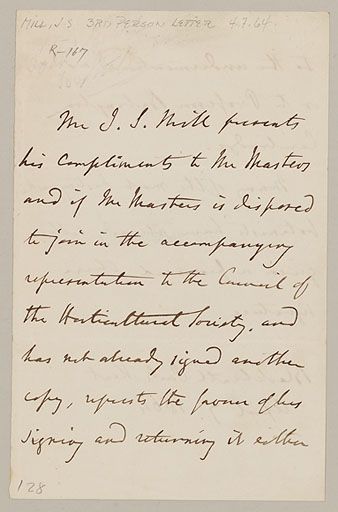 MILL, J S 3RD PERSON LETTER 4.7.64.
R-167
Mr J. S. Mill presents
his compliments to Mr Masters
and if Mr Masters is disposed
to join in the accompanying
representation to the Council of
the Horticultural Society, and
has not already signed another
copy, requests the favour of his
signing and returning it either
128